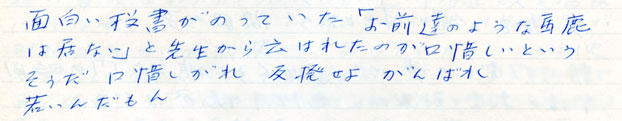 面白い投書がのっていた「お前達のような馬鹿
は居ない」と先生から云はれたのが口惜しいという
そうだ口惜しがれ 反撥せよ がんばれ
若いんだもん